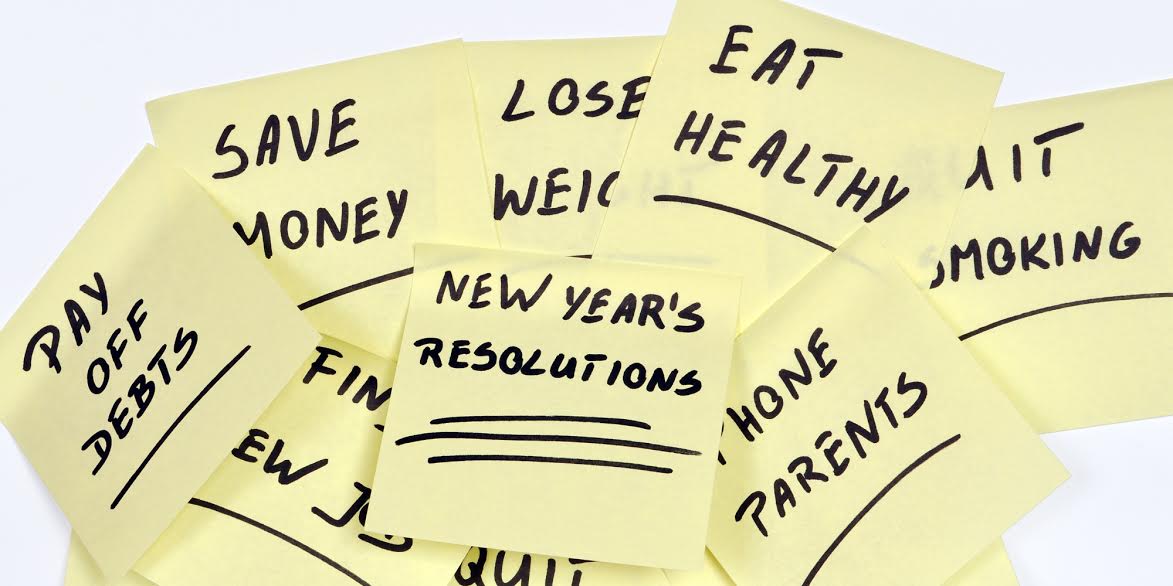 EAT
HEALTHY
LOSE
WEIG
SAVE
MONEY
QUIT
SMOKING
PAY
OFF
DEBTS
NEW YEAR'S
RESOLUTIONS
PHONE
PARENTS
FIN
EW JOB
QUIT